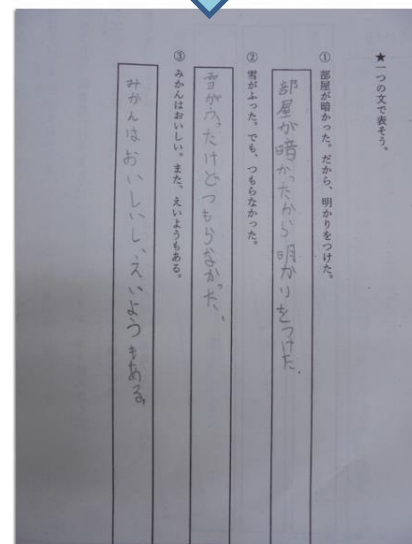 ★一つの文で表そう。
① 部屋が暗かった。だから、明かりをつけた。
部屋が暗かったから明かりをつけた.
② 雪がふった。でも、つもらなかった。
雪がふったけどつもらなかった。
③ みかんはおいしい。また、えいようもある。
みかんはおいしいし、えいようもある。